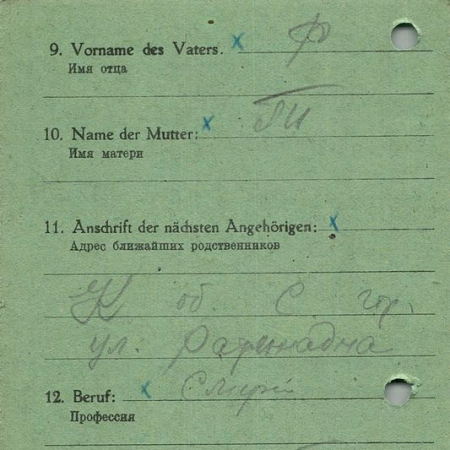 9. Vorname des Vaters. x Ф
Имя отца
10. Name der Mutter: x ПИ
Имя матери
11. Anschrift der nächsten Angehörigen: x
Адрес ближайших родственников
К об. С. гор.
ул.
12. Beruf: x
Профессия